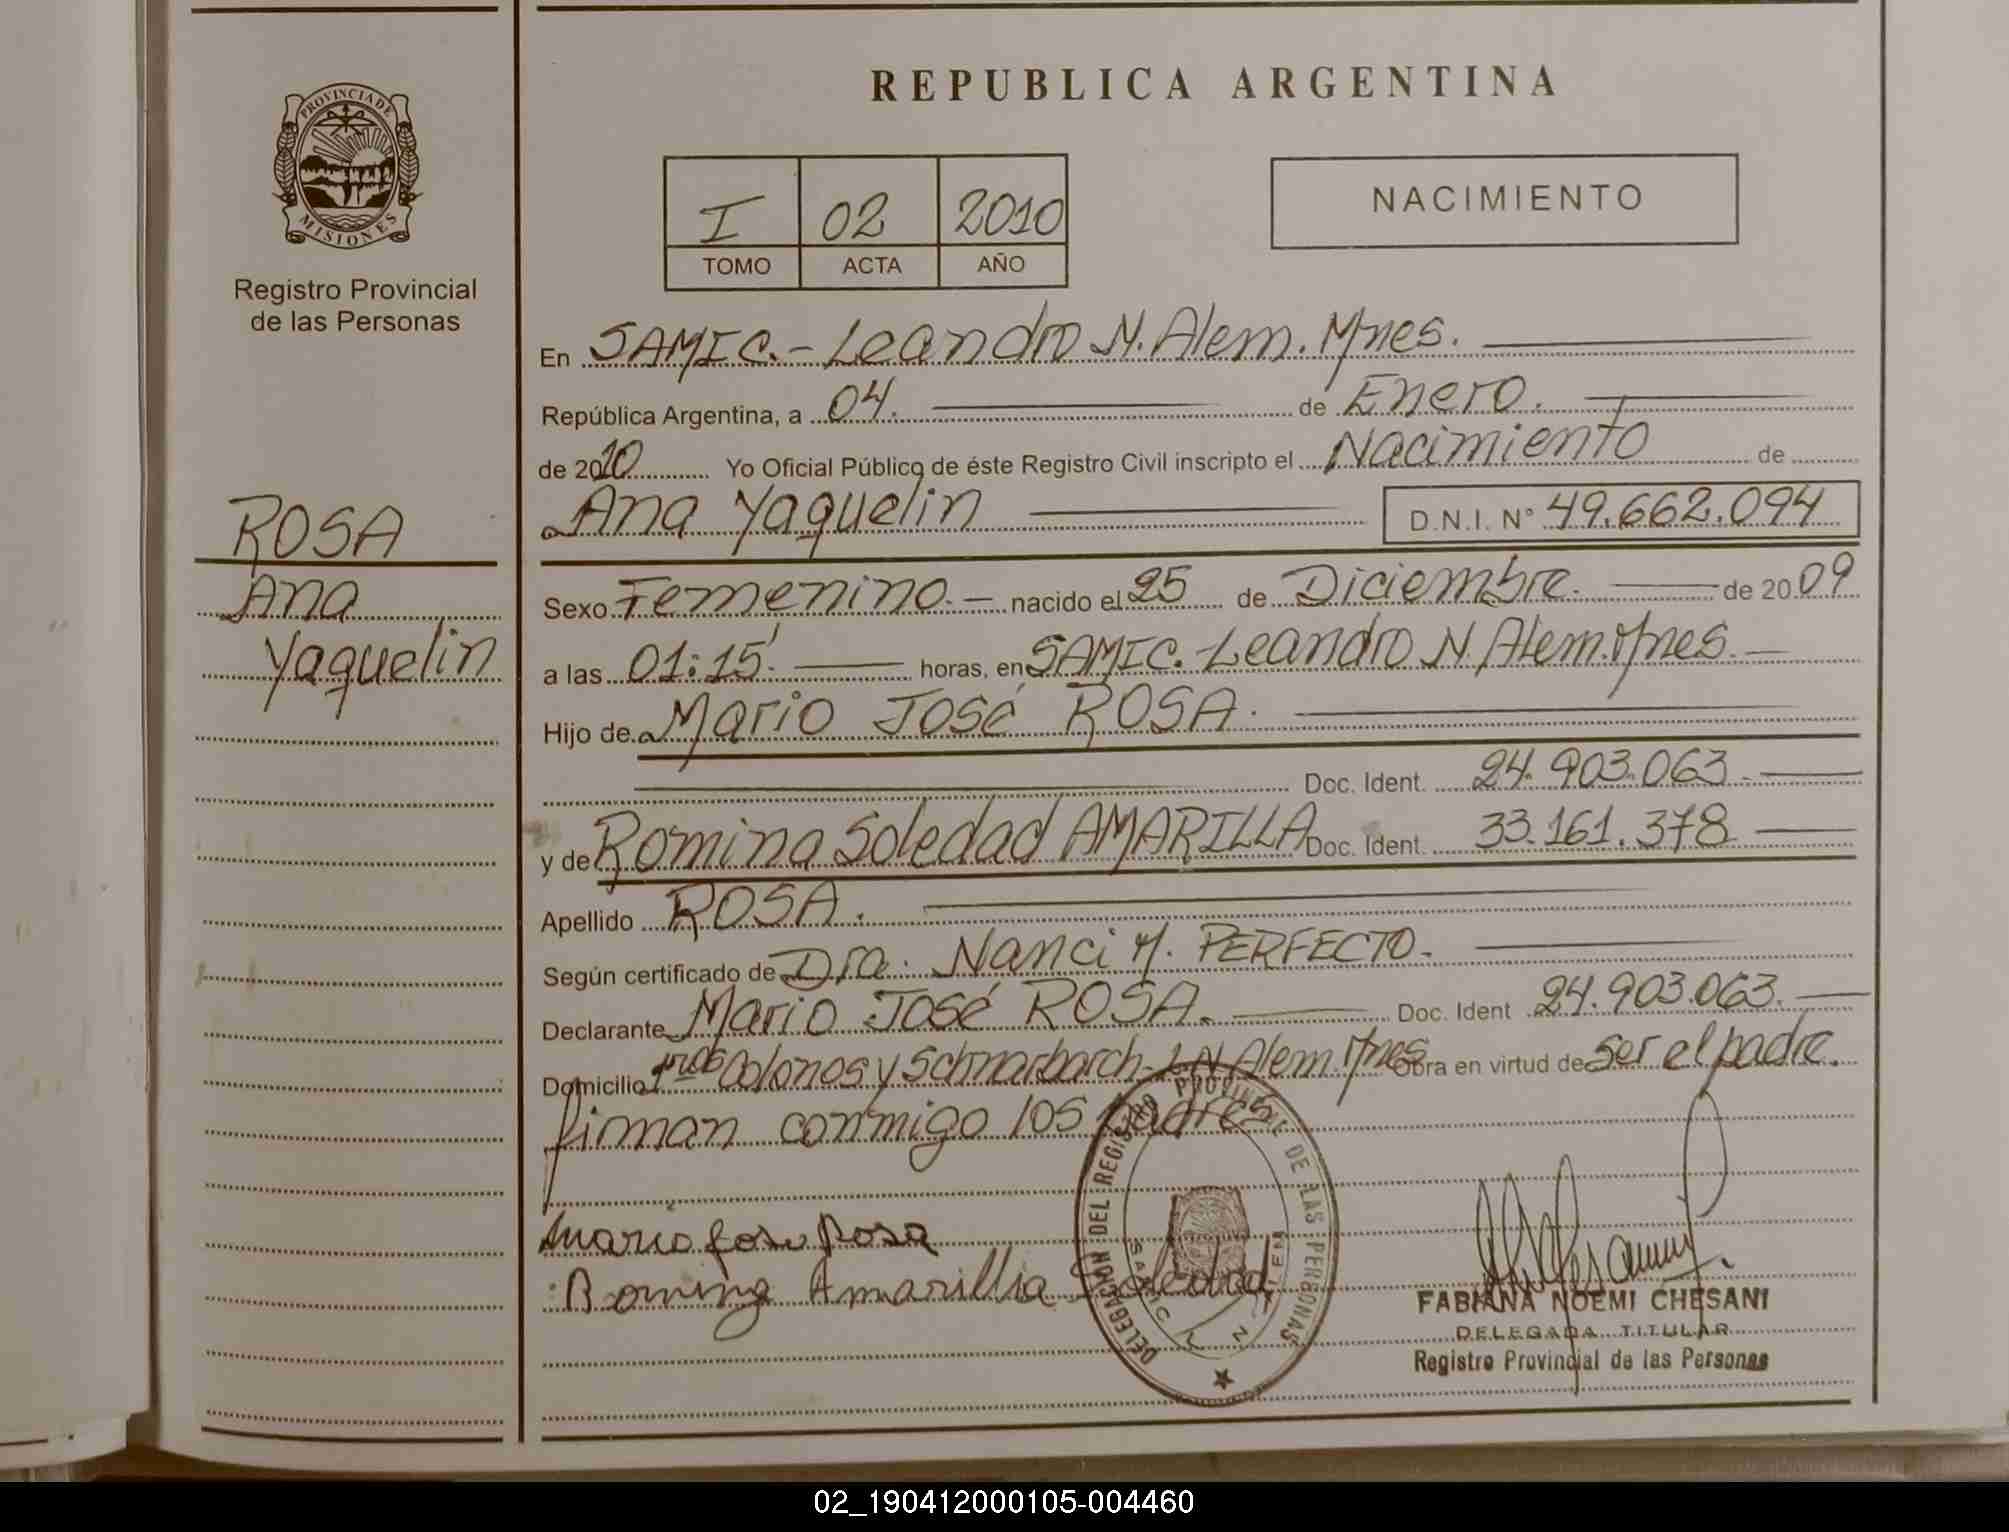 REPUBLICA ARGENTINA
PROVINCIA DE
MISIONES
Registro Provincial
de las Personas
I 02 2010
TOMO ACTA AÑO
NACIMIENTO
En SAMIC.- Leandro N. Alem. Mnes.
República Argentina, a 04. de Enero.
de 2010 Yo Oficial Público de éste Registro Civil inscripto el Nacimiento de
Ana Yaquelin D.N.I. Nº 49.662.094
ROSA
Ana
Yaquelin
Sexo Femenino.- nacido el 25 de Diciembre. de 2009
a las 01:15'. horas, en SAMIC. Leandro N. Alem. Mnes.
Hijo de Mario José ROSA.
Doc. Ident. 24.903.063.
y de Romina Soledad AMARILLA Doc. Ident. 33.161.378
Apellido ROSA.
Según certificado de Dra. Nanci M. PERFECTO.
Declarante Mario José ROSA. Doc. Ident 24.903.063.
Domicilio Colonos y L.N. Alem. Mnes Obra en virtud de ser el padre.
firman conmigo los padres
Mario Jose Rosa
Romina Amarillia Soledad
DELEGACION DEL REGISTRO PROVINCIAL DE LAS PERSONAS
SAMIC L. N. ALEM
FABIANA NOEMI CHESANI
DELEGADA TITULAR
Registro Provincial de las Personas
02_190412000105-004460